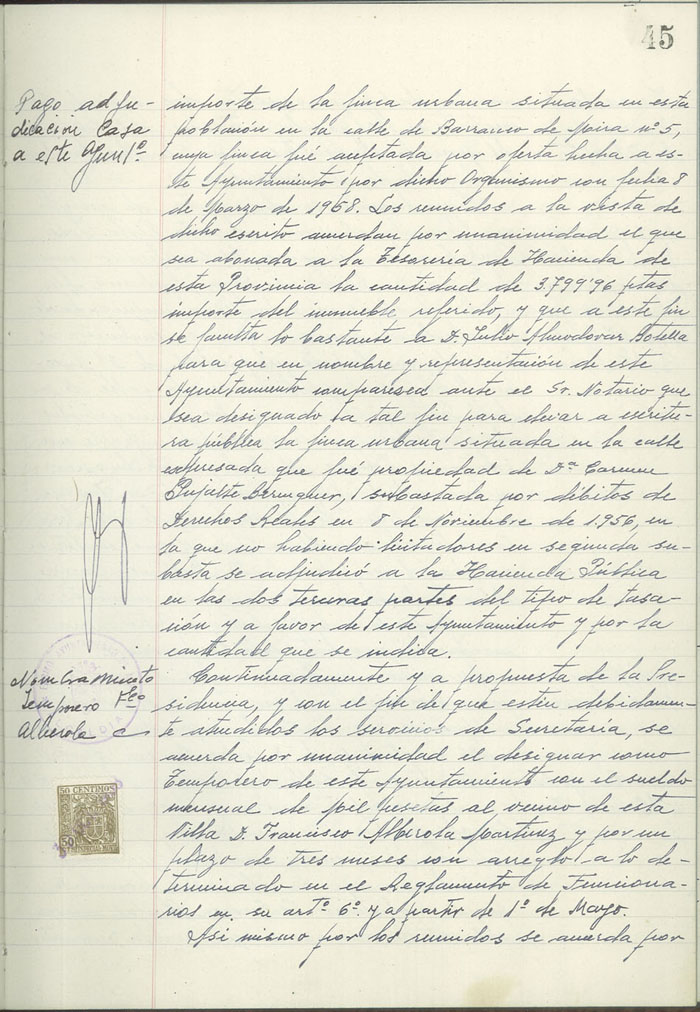 45
Pago adju-
dicación Casa
a este Ayunt.º
importe de la finca urbana situada en esta
población en la calle de Barranco de Mira nº 5,
cuya finca fué aceptada por oferta hecha a es-
te Ayuntamiento por dicho Organismo con fecha 8
de Marzo de 1958. Los reunidos a la vista de
dicho escrito acuerdan por unanimidad el que
sea abonada a la Tesorería de Hacienda de
esta Provincia la cantidad de 3.799'96 ptas
importe del inmueble referido, y que a este fin
se faculta lo bastante a D. Julio Almodovar Botella
para que en nombre y representación de este
Ayuntamiento comparezca ante el Sr. Notario que
sea designado a tal fin para elevar a escritu-
ra pública la finca urbana situada en la calle
expresada que fué propiedad de Dª Carmen
Pujalte Berenguer, subastada por débitos de
Derechos Reales en 8 de Noviembre de 1.956, en
la que no habiendo licitadores en segunda su-
basta se adjudicó a la Hacienda Pública
en las dos terceras partes del tipo de tasa-
ción y a favor de este Ayuntamiento y por la
cantidad que se indica.
Nombramiento
temporero Fco
Alberola
Continuadamente y a propuesta de la Pre-
sidencia, y con el fin de que esten debidamen-
te atendidos los servicios de Secretaría, se
acuerda por unanimidad el designar como
Temporero de este Ayuntamiento con el sueldo
mensual de mil pesetas al vecino de esta
Villa D. Francisco Alberola Martinez y por un
plazo de tres meses con arreglo a lo de-
terminado en el Reglamento de Funciona-
rios en su artº 6º y a partir de 1º de Mayo.
Asi mismo por los reunidos se acuerda por
50 CENTIMOS
50